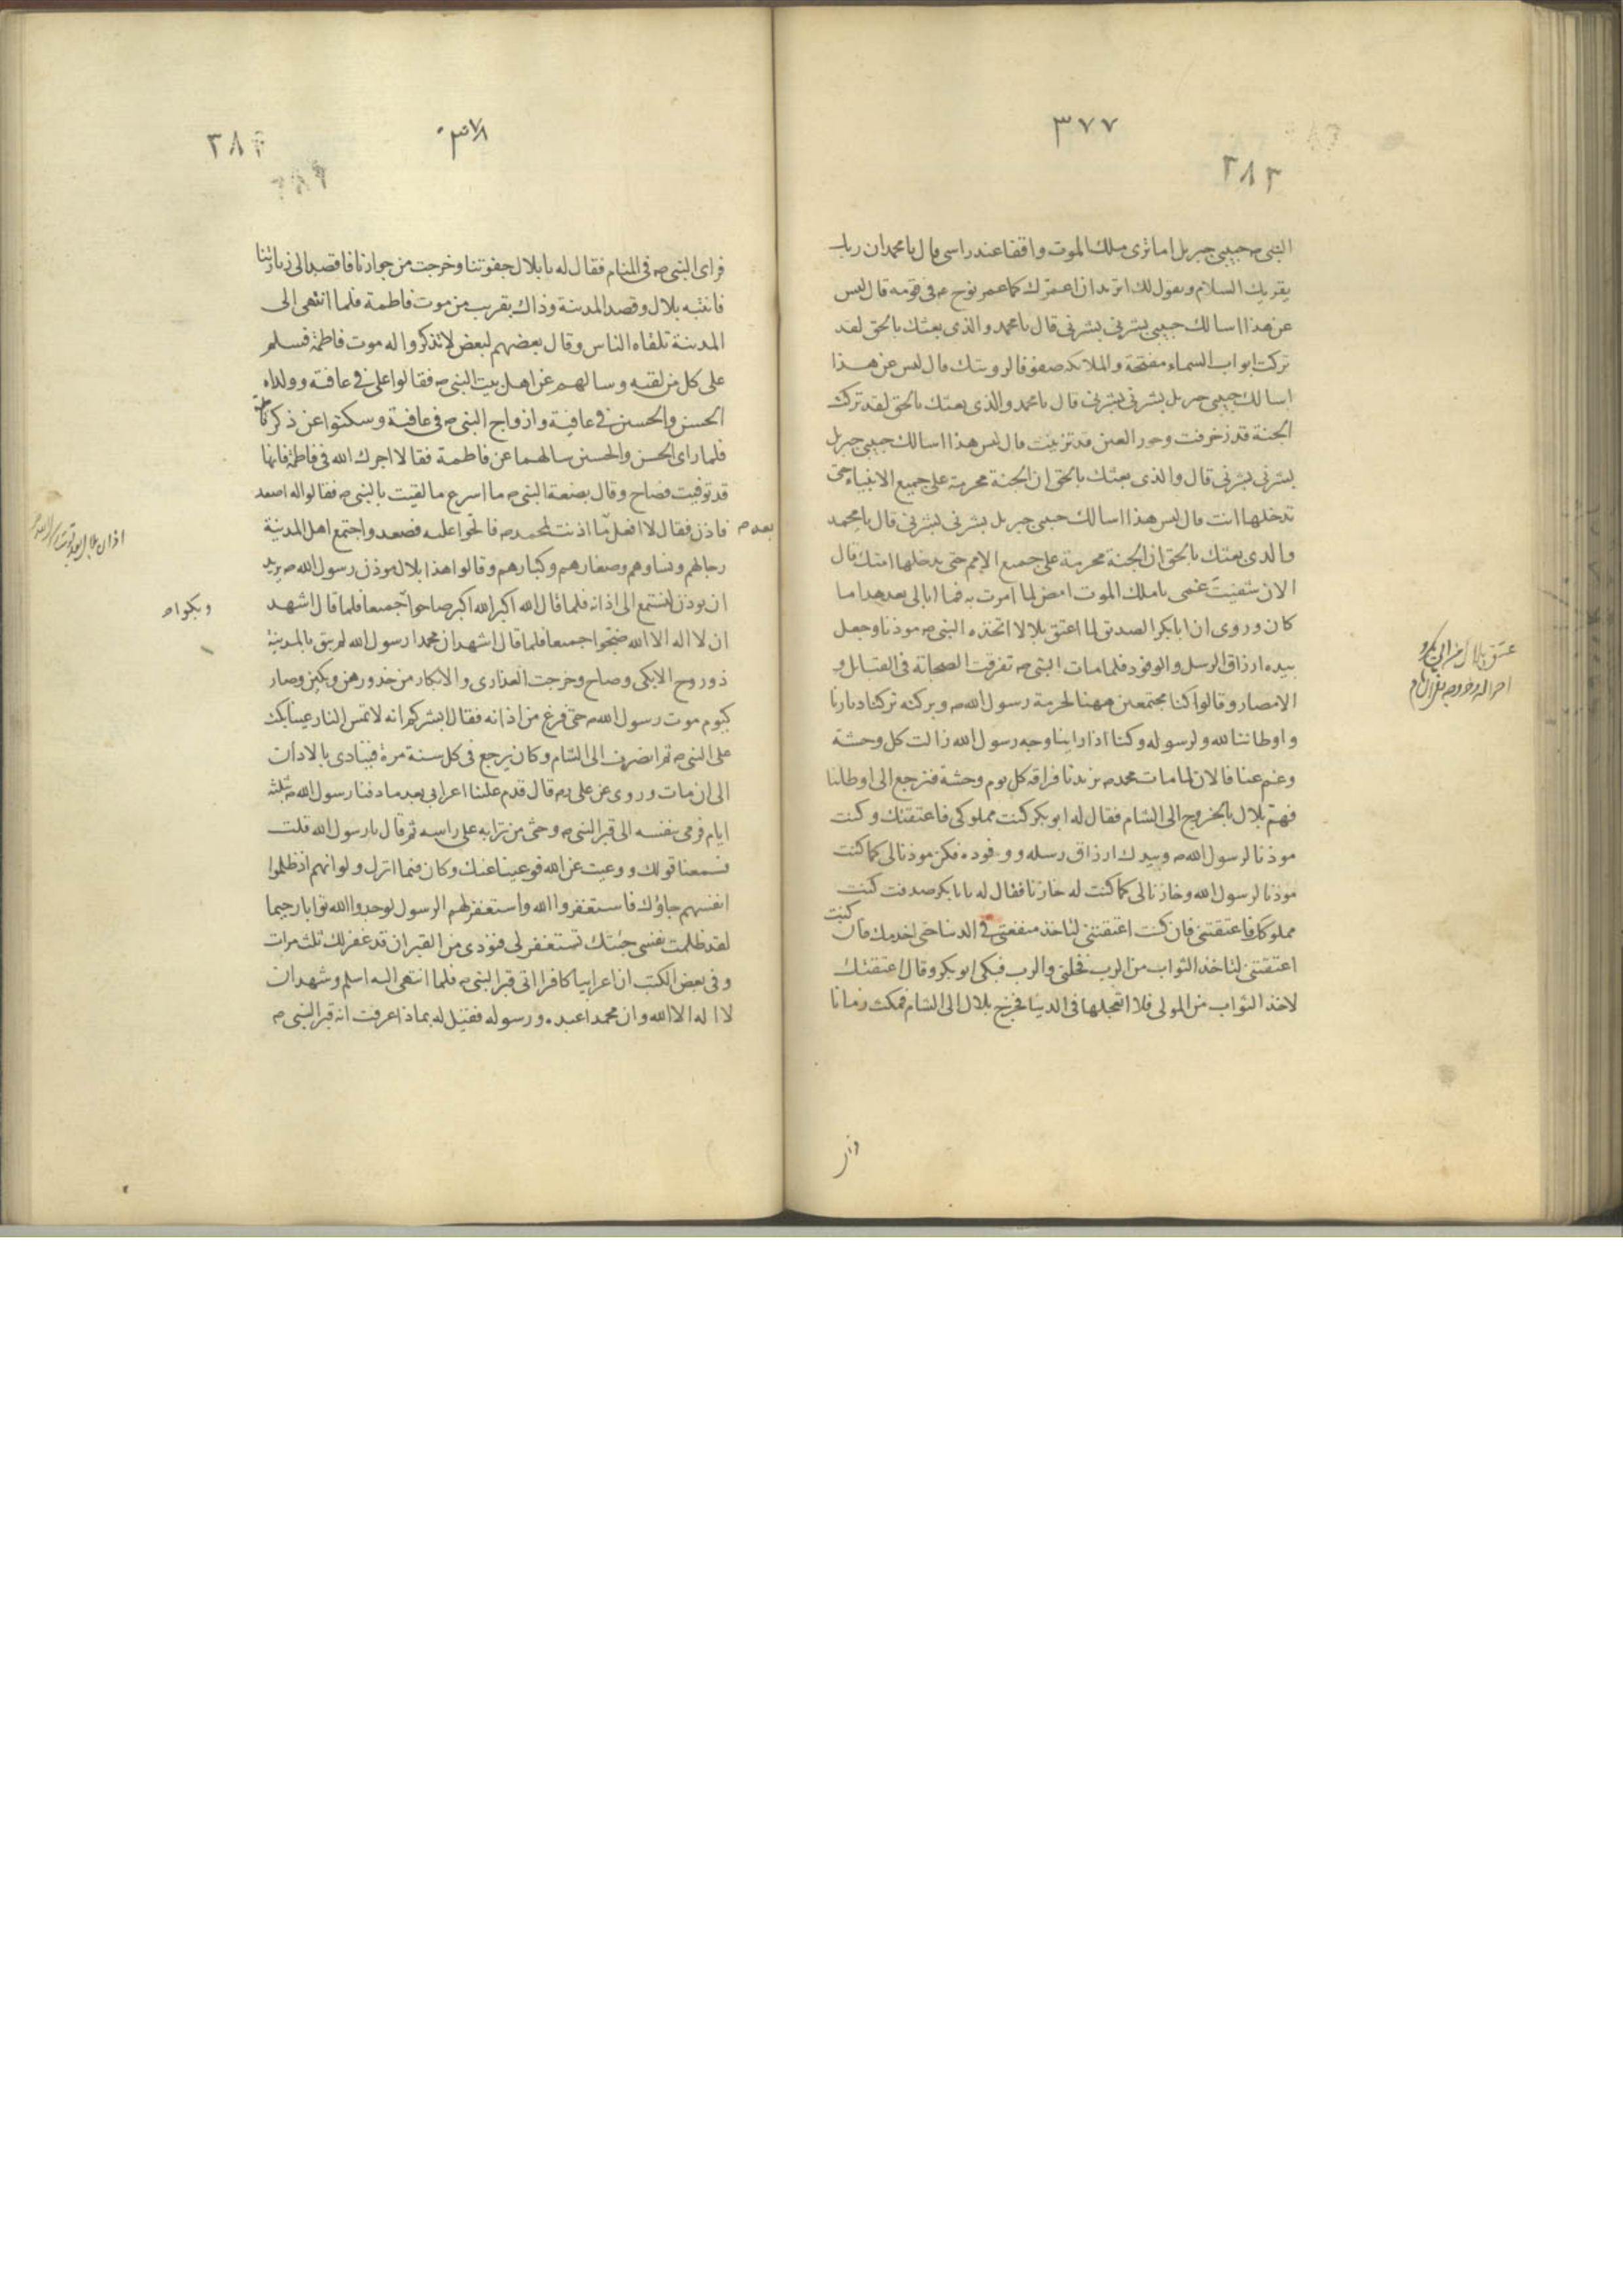 ٣٧٧
٣٨٣
النبى صم حبيبى جبريل اما ترى ملك الموت واقفا عند راسى قال يا محمد ان ربك
يقريك السلام ويقول لك اتريد ان اعمرك كما عمر نوح عم فى قومه قال ليس
عن هذا اسالك حبيبى بشرنى بشرنى قال يا محمد والذى بعثك بالحق لقد
تركت ابواب السماء مفتحة والملائكة صفوفا لرويتك قال ليس عن هذا
اسالك حبيبى جبريل بشرنى بشرنى قال يا محمد والذى بعثك بالحق لقد تركت
الجنة قد زخرفت وحور العين قد تزينت قال ليس هذا اسالك حبيبى جبريل
بشرنى بشرنى قال والذى بعثك بالحق ان الجنة محرمة على جميع الانبياء حتى
تدخلها انت قال ليس هذا اسالك حبيبى جبريل بشرنى بشرنى قال يا محمد
والذى بعثك بالحق ان الجنة محرمة على جميع الامم حتى يدخلها امتك قال
الان شفيت غمى يا ملك الموت امض لما امرت به فما ابالى بعد هذا ما
كان وروى ان ابا بكر الصديق لما اعتق بلالا اتخذه النبى صم موذنا وجعل
بيده ارزاق الرسل والوفود فلما مات النبى صم تفرقت الصحابة فى القبائل و
الامصار وقالوا كنا مجتمعين ههنا لحرمة رسول الله صم وبركته تركنا ديارنا
واوطاننا لله ولرسوله وكنا اذا راينا وجه رسول الله زالت كل وحشة
وغم عنا فالان لما مات محمد صم يزيدنا فراقه كل يوم وحشة فنرجع الى اوطاننا
فهم بلال بالخروج الى الشام فقال له ابو بكر كنت مملوكى فاعتقتك وكنت
موذنا لرسول الله صم وبيدك ارزاق رسله ووفوده فكن موذنا لى كما كنت
موذنا لرسول الله وخازنا لى كما كنت له خازنا فقال له يا ابا بكر صدقت كنت
مملوكك فاعتقتنى فان كنت اعتقتنى لتاخذ منفعتى فى الدنيا حتى اخدمك فان كنت
اعتقتنى لتاخذ الثواب من الرب فخلنى والرب فبكى ابو بكر وقال اعتقتك
لاخذ الثواب من المولى فلا اتعجلها فى الدنيا فخرج بلال الى الشام فمكث زمانا
عتق بلال من ابى بكر و
٣٧٨
٣٨٤
فراى النبى صم فى المنام فقال له يا بلال جفوتنا وخرجت من جوارنا فاقصد الى زيارتنا
فانتبه بلال وقصد المدينة وذاك بقرب من موت فاطمة فلما انتهى الى
المدينة تلقاه الناس وقال بعضهم لبعض لا تذكروا له موت فاطمة فسلم
على كل من لقيه وسالهم عن اهل بيت النبى صم فقالوا على فى عافية وولداه
الحسن والحسين فى عافية وازواج النبى صم فى عافية وسكتوا عن ذكر فاطمة
فلما راى الحسن والحسين سالهما عن فاطمة فقالا اجرك الله فى فاطمة فانها
قد توفيت فصاح وقال بضعة النبى صم ما اسرع ما لقيت بالنبى صم فقالوا له اصعد
فاذن فقال لا افعل بما اذنت لمحمد صم فالحوا عليه فصعد واجتمع اهل المدينة
بعد صم
رجالهم ونساوهم وصغارهم وكبارهم وقالوا هذا بلال موذن رسول الله صم يريد
ان يوذن لنستمع الى اذانه فلما قال الله اكبر الله اكبر صاحوا جميعا فلما قال اشهد
وبكوا
ان لا اله الا الله ضجوا جميعا فلما قال اشهد ان محمدا رسول الله لم يبق بالمدينة
ذو روح الا بكى وصاح وخرجت العذارى والابكار من خدورهن ويبكين وصار
كيوم موت رسول الله صم حتى فرغ من اذانه فقال ابشركم انه لا تمس النار عينا بكت
على النبى صم ثم انصرف الى الشام وكان يرجع فى كل سنة مرة فينادى بالاذان
الى ان مات وروى عن على رم قال قدم علينا اعرابى بعد ما دفنا رسول الله صم ثلثة
ايام فرمى بنفسه الى قبر النبى صم وحثى من ترابه على راسه ثم قال يا رسول الله قلت
فسمعنا قولك ووعيت عن الله فوعينا عنك وكان فيما انزل ولو انهم اذ ظلموا
انفسهم جاؤك فاستغفروا الله واستغفر لهم الرسول لوجدوا الله توابا رحيما
لقد ظلمت نفسى جئتك تستغفر لى فنودى من القبر ان قد غفر لك ثلث مرات
وفى بعض الكتب ان اعرابيا كافرا اتى قبر النبى صم فلما انتهى اليه اسلم وشهد ان
لا اله الا الله وان محمدا عبده ورسوله فقيل له بماذا عرفت انه قبر النبى صم